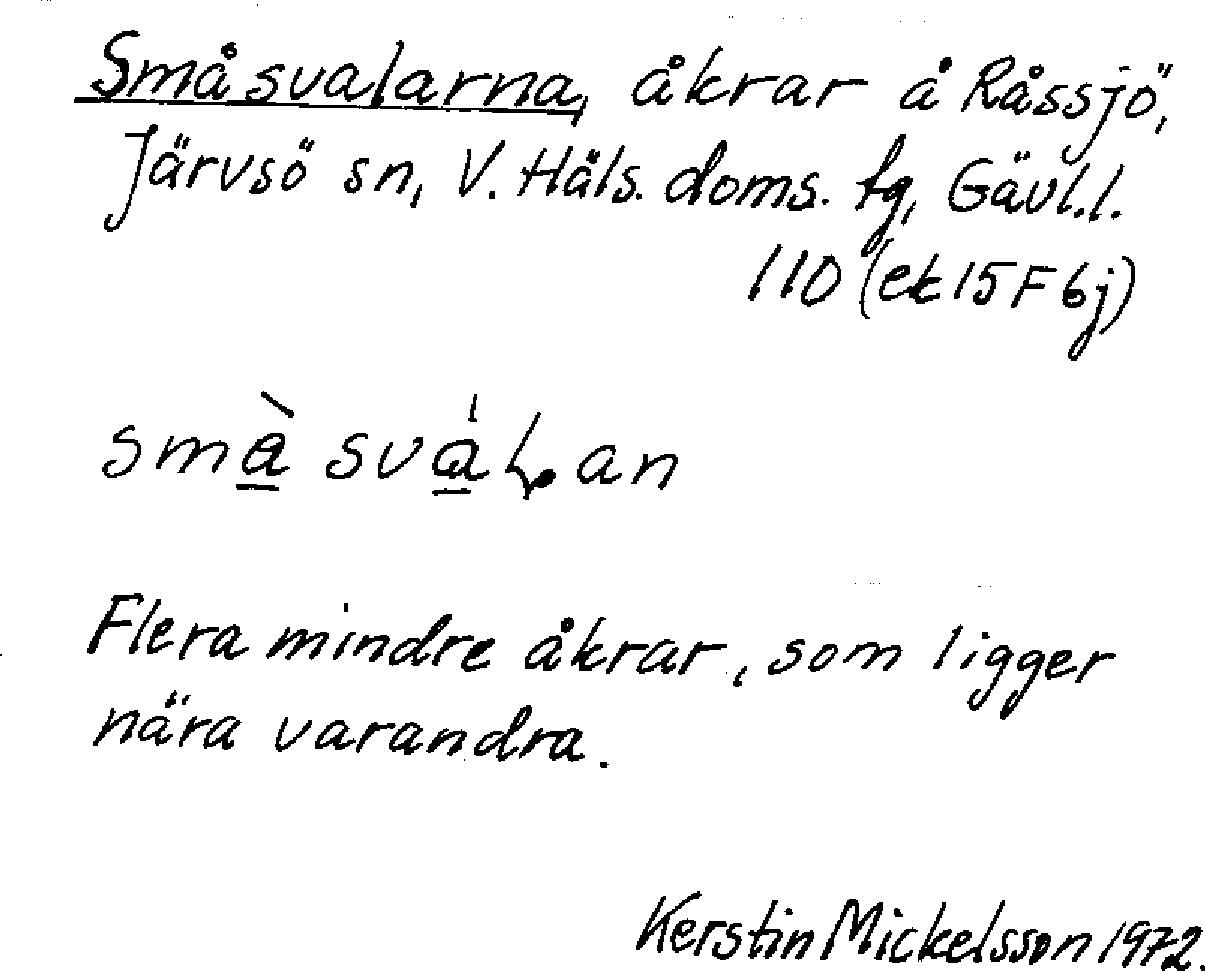 Småsvalarna, åkrar å Råssjö,
Järvsö sn, V. Häls. doms. tg, Gävl.l.
110 (ek 15 F 6j)
smà svàɭan
Flera mindre åkrar, som ligger
nära varandra.
Kerstin Mickelsson 1972.